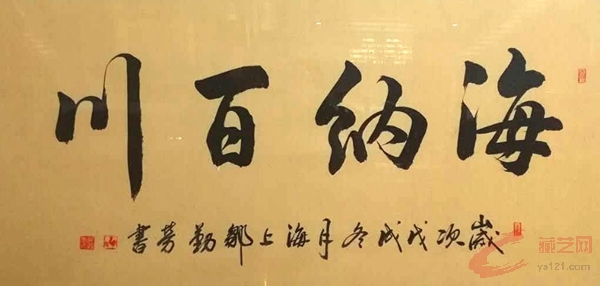 海纳百川
歲次戊戌冬月海上鄒勤勞書
藏艺网
ya121.com